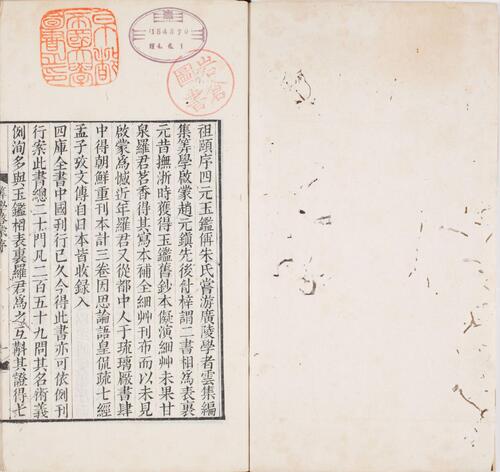 祖頤序四元玉鑑偁朱氏嘗游廣陵學者雲集編
集筭學啟蒙趙元鎮先後付梓謂二書相爲表裏
元昔撫浙時獲得玉鑑舊鈔本儗演細艸未果甘
泉羅君茗香得其寫本補全細艸刊布而以未見
啟蒙爲憾近年羅君又從都中人于琉璃厰書肆
中得朝鮮重刊本計三卷因思論語皇侃疏七經
孟子攷文傳自日本皆收錄入
四庫全書中國刋行已久今得此書亦可依例刊
行案此書總二十門凡二百五十九問其名術義
例洵多與玉鑑相表裏羅君爲之互斠其證得七
184370
岩倉圖書